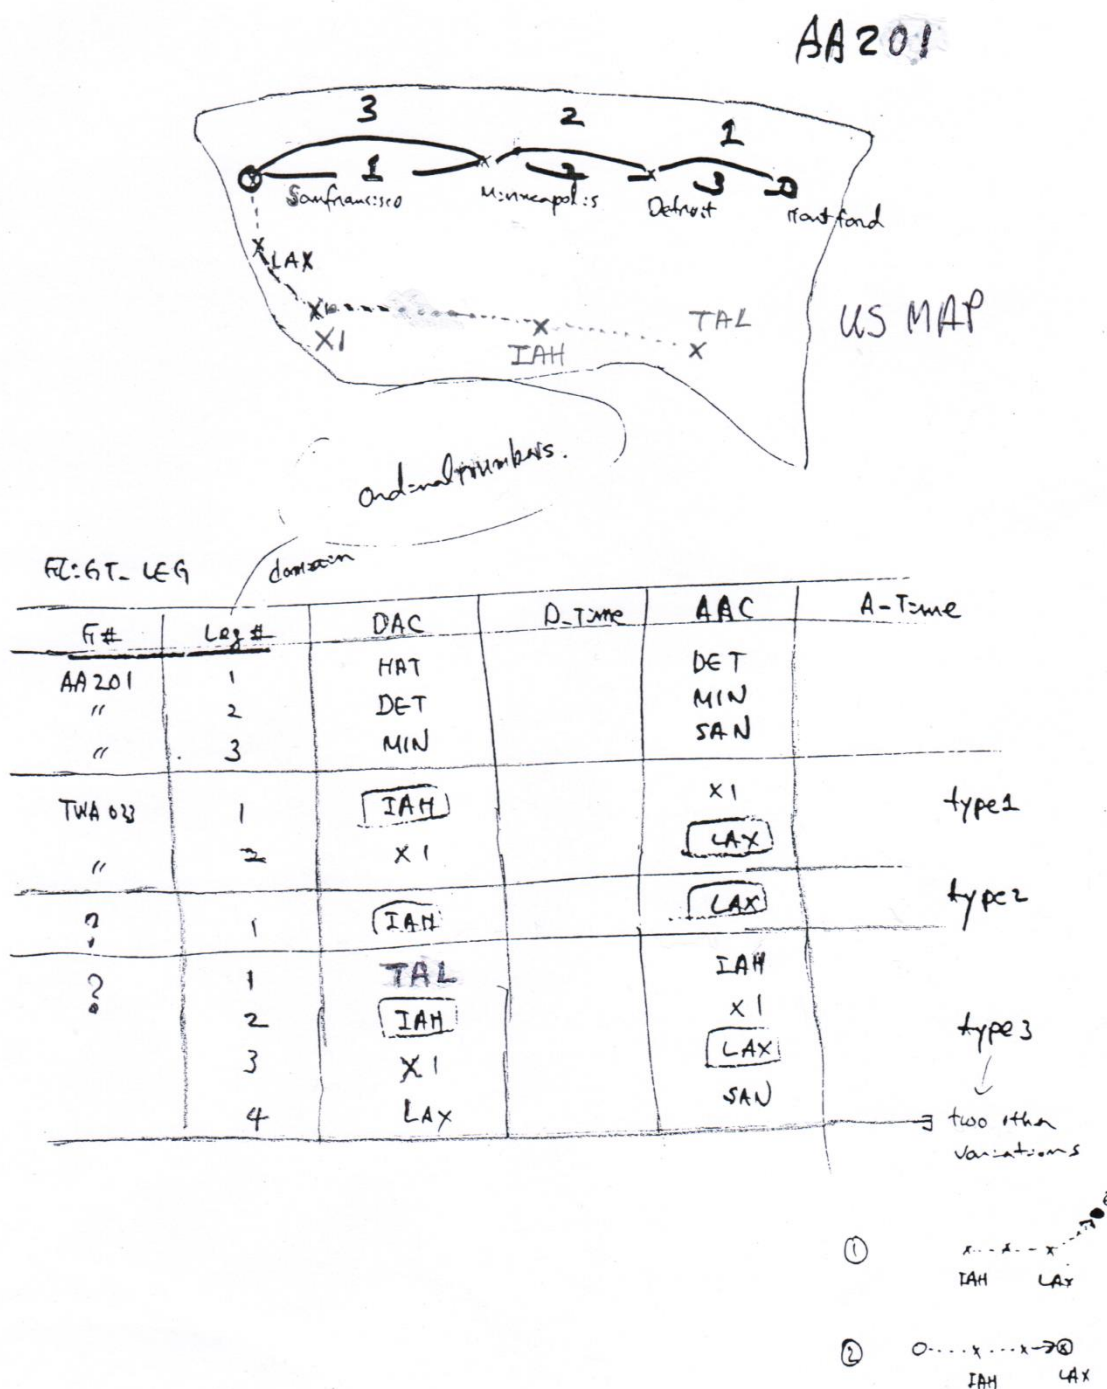 AA201
3 2 1
1 2 3
Sanfrancisco Minneapolis Detroit Hartford
LAX
X1 IAH TAL
US MAP
ordinal numbers.
domain
FLIGT_LEG
F# Leg # DAC D_Time AAC A-Time
AA201 1 HAT DET
〃 2 DET MIN
〃 3 MIN SAN
TWA 1 IAH X1 type1
〃 2 X1 LAX
? 1 IAH LAX type2
? 1 TAL IAH
2 IAH X1 type3
3 X1 LAX
4 LAX SAN
two other
variations
① IAH LAX
② IAH LAX